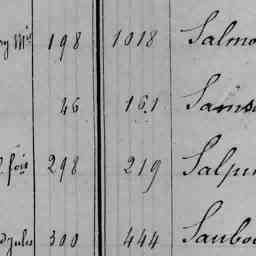 198 1018 Salmo
46 161 Sams
fois 298 219 Salp
Jules 300 444 Saubo